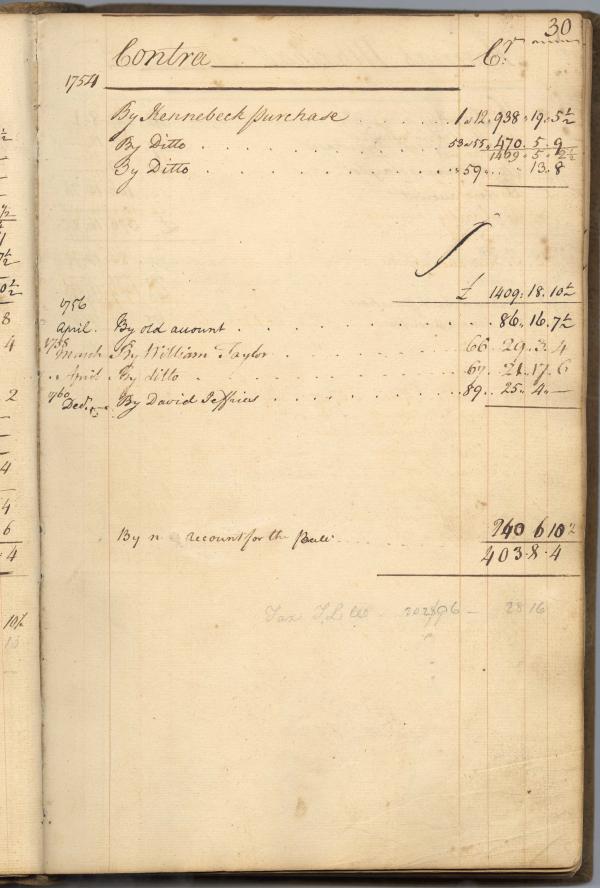 30
Contra Cr.
1754
By Kennebeck purchase 1 a 12. 938. 19. 5½
By Ditto 53 a 55. 470. 5. 9
1409. 5. 2½
By Ditto 59 13. 8
£ 1409. 18. 10½
1756
April. By old account 86. 16. 7½
1758
March By William Taylor 66. 29. 3. 4
April By ditto 67. 21. 17. 6
1760
Decr. 15 By David Jeffries 89. 25. 4. —
By n account for the 240 6 10½
403. 8. 4
Tax 28 16
4
2
4
4
6
4
10½